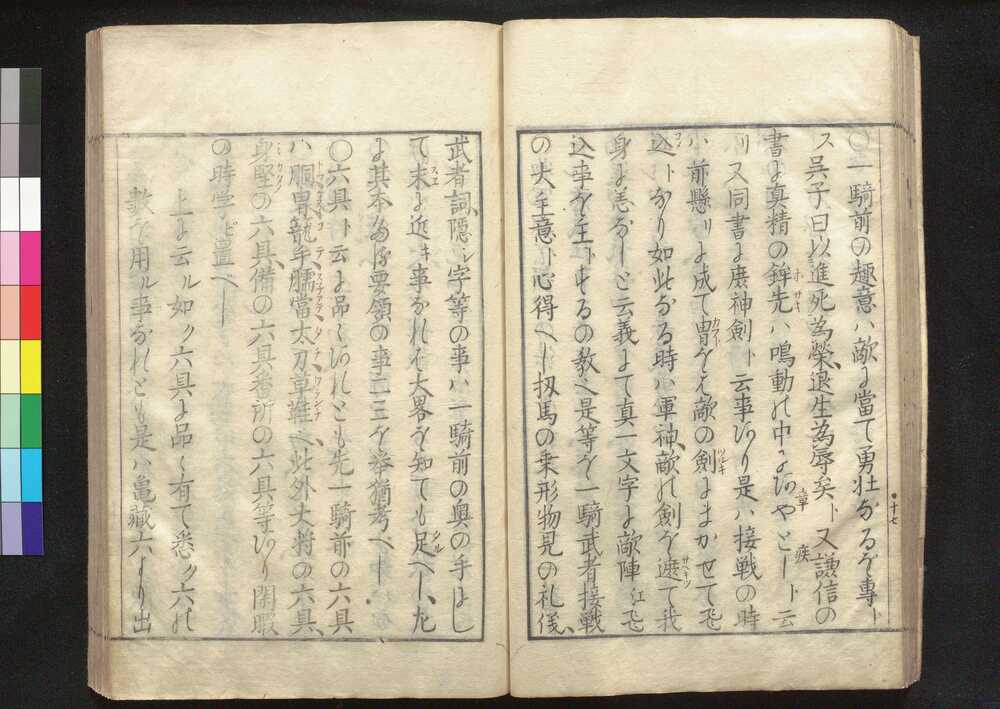 〇一騎前の趣意ハ敵に當て勇壮なるを專ト
ス呉子曰以進死為榮退生為辱矣ト又謙信の
書に真精の鉾先ハ鳴動の中にありやとしト云
リ又同書に摩神劍ト云事あり是ハ接戦の時
ハ前懸リに成て冑を敵の劍にまかせて飛
込トなり如此なる時ハ軍神敵の劍を遮て我
身に恙なしと云義にて真一文字に敵陣江飛
込事を主トするの教へ是等を一騎武者接戦
の大主意ト心得へし扨馬の乗形物見の礼儀、
十七
武者詞隠シ字等の事ハ一騎前の奥の手にし
て末に近キ事なれハ大畧を知ても足へした
其本なる要領の事二三を挙猶考へし
〇六具ト云に品々あれとも先一騎前の六具
ハ胴冑籠手臑當太刀草鞋へ此外大将の六具、
身堅の六具備の六具番所の六具等あり閑暇
の時学ビ置へし
上に云ル如ク六具に品々有て悉ク六の
數を用ル事なれとも是ハ亀蔵六より出